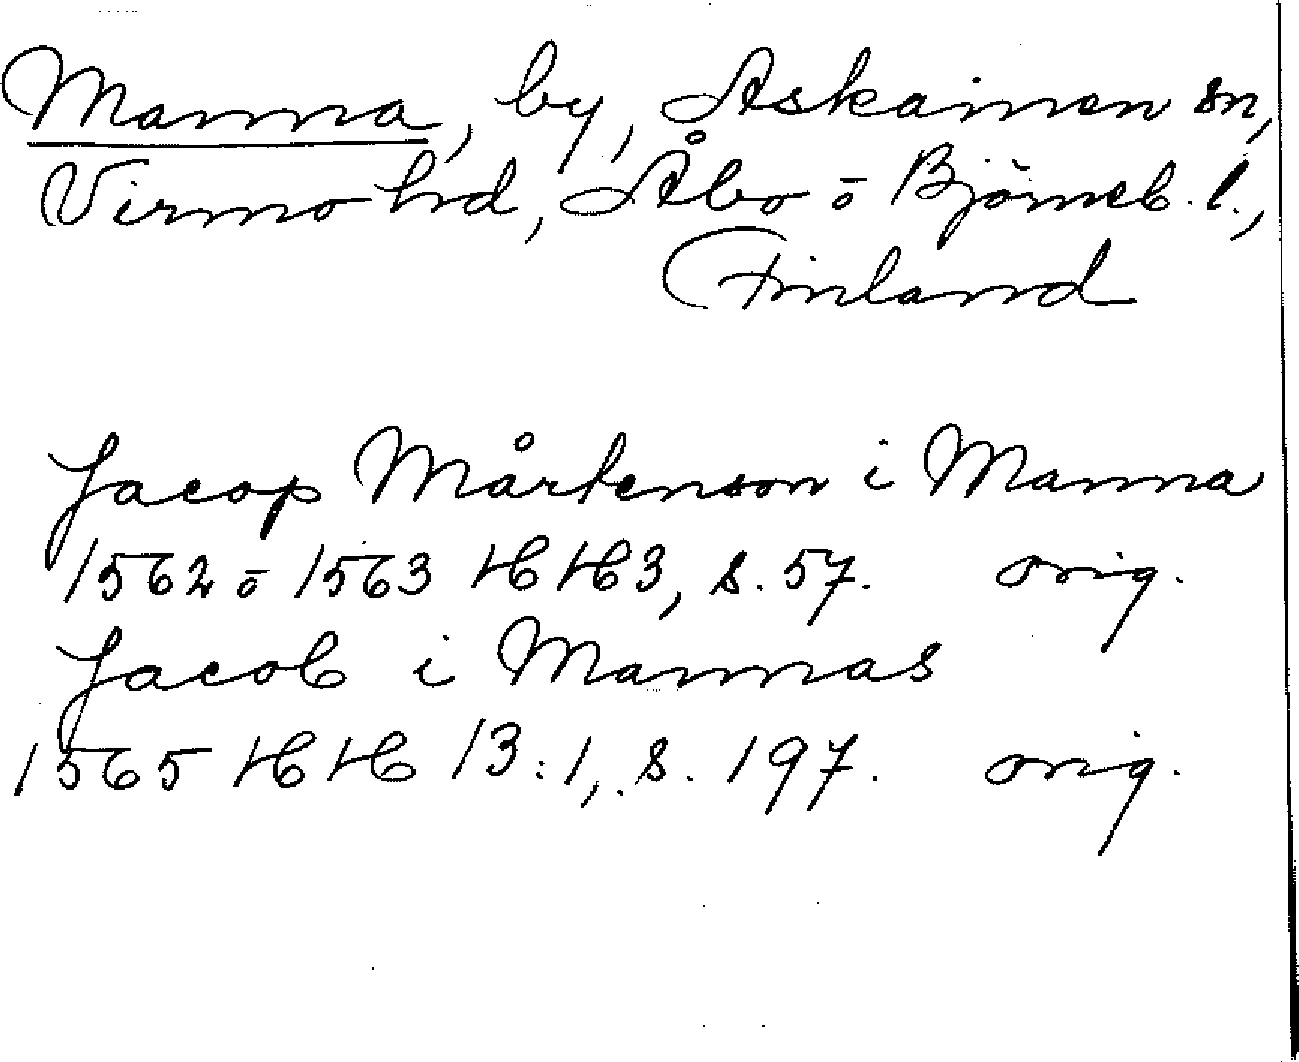 Manna, by, Askainen sn,
Virmo hd, Åbo o Björneb. l.,
Finland
Jacop Mårtenson i Manna
1562 o 1563 HH3, s. 57. orig.
Jacob i Mannas
1565 HH 13:1, s. 197. orig.